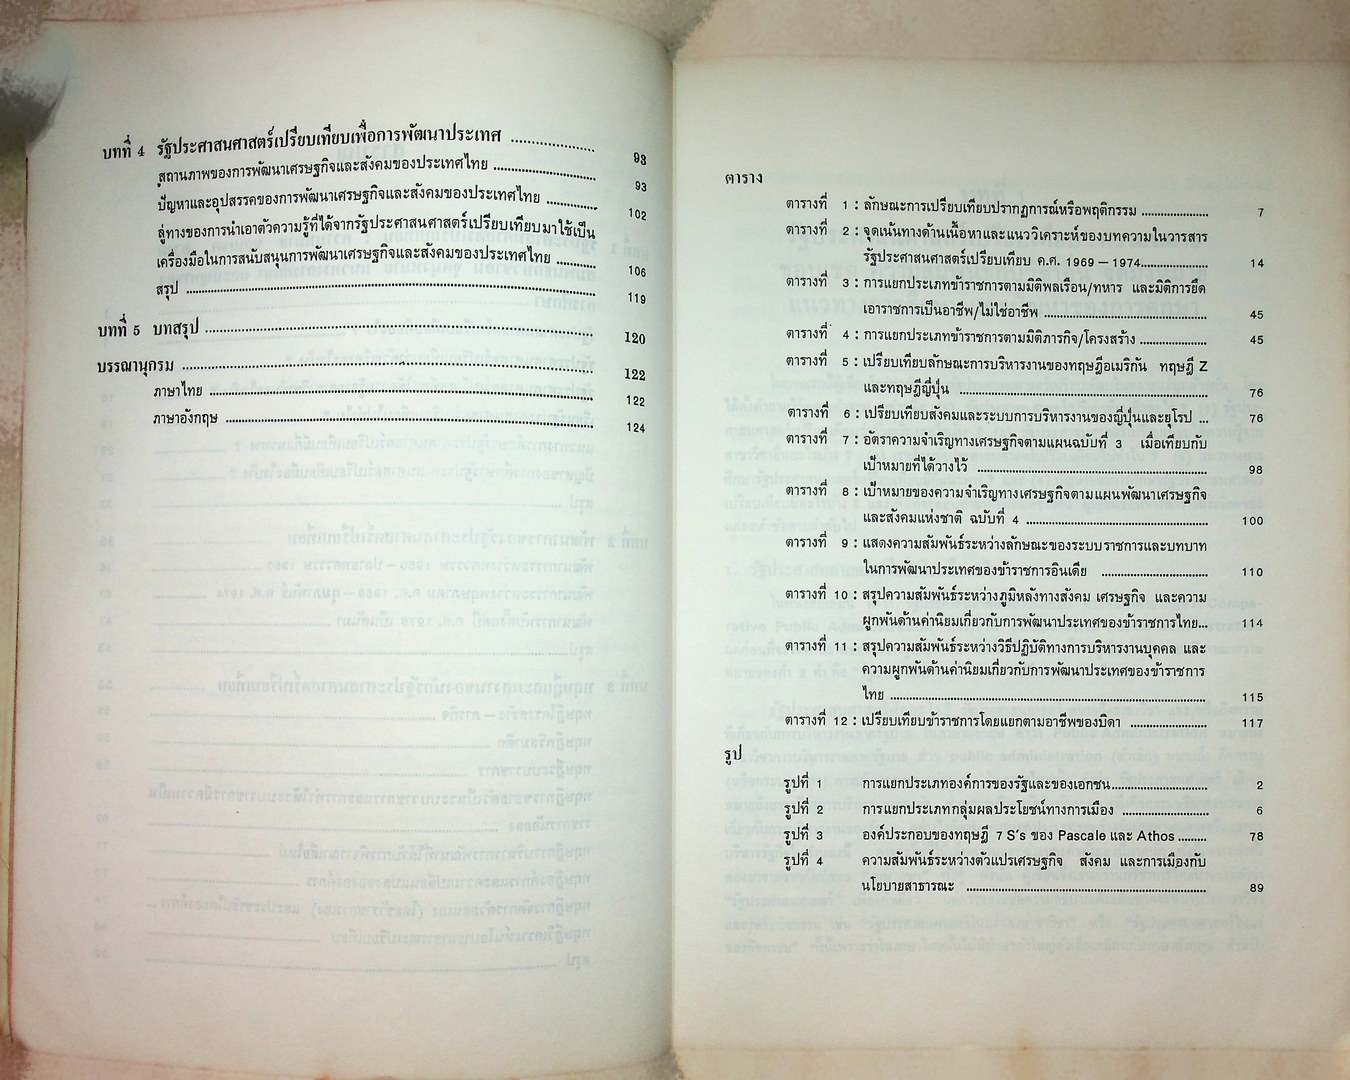 บทที่ 4 รัฐประศาสนศาสตร์เปรียบเทียบเพื่อการพัฒนาประเทศ .................... 93
สถานภาพของการพัฒนาเศรษฐกิจและสังคมของประเทศไทย .......................... 93
ปัญหาและอุปสรรคของการพัฒนาเศรษฐกิจและสังคมของประเทศไทย ............. 102
ลู่ทางของการนำเอาตัวความรู้ที่ได้จากรัฐประศาสนศาสตร์เปรียบเทียบมาใช้เป็น
เครื่องมือในการสนับสนุนการพัฒนาเศรษฐกิจและสังคมของประเทศไทย ........... 106
สรุป ........................................................................ 119
บทที่ 5 บทสรุป ........................................................................ 120
บรรณานุกรม ........................................................................ 122
ภาษาไทย ........................................................................ 122
ภาษาอังกฤษ ........................................................................ 124
ตาราง
ตารางที่ 1 : ลักษณะการเปรียบเทียบปรากฏการณ์หรือพฤติกรรม ...................... 7
ตารางที่ 2 : จุดเน้นทางด้านเนื้อหาและแนววิเคราะห์ของบทความในวารสาร
รัฐประศาสนศาสตร์เปรียบเทียบ ค.ศ. 1969 – 1974...................... 14
ตารางที่ 3 : การแยกประเภทข้าราชการตามมิติพลเรือน/ทหาร และมิติการยึด
เอาราชการเป็นอาชีพ/ไม่ใช่อาชีพ .......................................... 45
ตารางที่ 4 : การแยกประเภทข้าราชการตามมิติภารกิจ/โครงสร้าง ...................... 45
ตารางที่ 5 : เปรียบเทียบลักษณะการบริหารงานของทฤษฎีอเมริกัน ทฤษฎี Z
และทฤษฎีญี่ปุ่น ................................................................ 76
ตารางที่ 6 : เปรียบเทียบสังคมและระบบการบริหารงานของญี่ปุ่นและยุโรป ... 76
ตารางที่ 7 : อัตราความจำเริญทางเศรษฐกิจตามแผนฉบับที่ 3 เมื่อเทียบกับ
เป้าหมายที่ได้วางไว้ .......................................................... 98
ตารางที่ 8 : เป้าหมายของความจำเริญทางเศรษฐกิจตามแผนพัฒนาเศรษฐกิจ
และสังคมแห่งชาติ ฉบับที่ 4 ................................................ 100
ตารางที่ 9 : แสดงความสัมพันธ์ระหว่างลักษณะของระบบราชการและบทบาท
ในการพัฒนาประเทศของข้าราชการอินเดีย ............................ 110
ตารางที่ 10 : สรุปความสัมพันธ์ระหว่างภูมิหลังทางสังคม เศรษฐกิจ และความ
ผูกพันด้านค่านิยมเกี่ยวกับการพัฒนาประเทศของข้าราชการไทย... 114
ตารางที่ 11 : สรุปความสัมพันธ์ระหว่างวิธีปฏิบัติทางการบริหารงานบุคคล และ
ความผูกพันด้านค่านิยมเกี่ยวกับการพัฒนาประเทศของข้าราชการ
ไทย ................................................................................ 115
ตารางที่ 12 : เปรียบเทียบข้าราชการโดยแยกตามอาชีพของบิดา ...................... 117
รูป
รูปที่ 1 การแยกประเภทองค์การของรัฐและของเอกชน.......................... 2
รูปที่ 2 การแยกประเภทกลุ่มผลประโยชน์ทางการเมือง ........................ 6
รูปที่ 3 องค์ประกอบของทฤษฎี 7 S's ของ Pascale และ Athos ......... 78
รูปที่ 4 ความสัมพันธ์ระหว่างตัวแปรเศรษฐกิจ สังคม และการเมืองกับ
นโยบายสาธารณะ ................................................................ 89